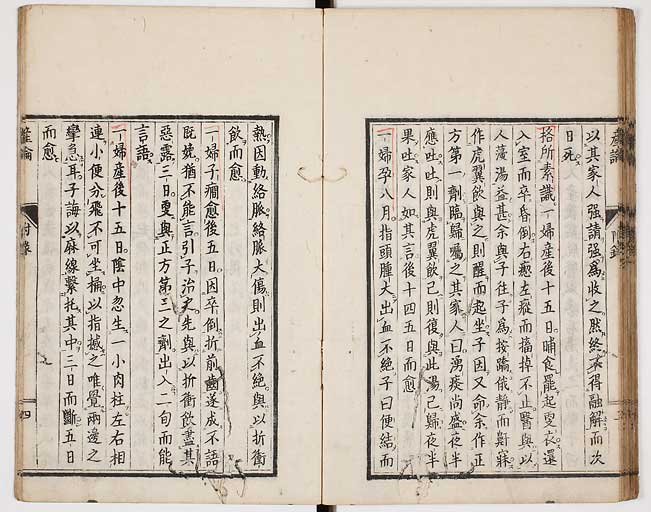 以其家人強請強爲收之然終不得融解而次
日死
格所素識一婦産後十五日晡食罷起更衣還
入室而卒昏倒右瘛左瘲而搐掉不止醫與以
人薓湯益甚余與子往子爲按蹻俄静而鼾寐
作虎翼飲與之則醒而起坐子因又命余作正
方第一劑臨歸囑之其家人曰湧痰尚盛夜半
應吐吐則與虎翼飲已則復與此湯已歸夜半
果吐家人如其言後十四五日而愈
一婦孕八月指頭腫大出血不絶子曰便結而
熱因動絡脈絡脈大傷則出血不絶與以折衝
飲而愈
一婦子癇愈後五日因卒倒折前齒遂成不語
既娩猶不能言引子治之先與以折衝飲盡其
惡露三日更與正方第三之劑出入二旬而能
言語
一婦産後十五日陰中忽生一小肉柱左右相
連小便分飛不可坐搔以指撼之唯覺兩邊之
攣急耳子誨以麻線繫托其中三日而斷五日
而愈
産論
附錄
四